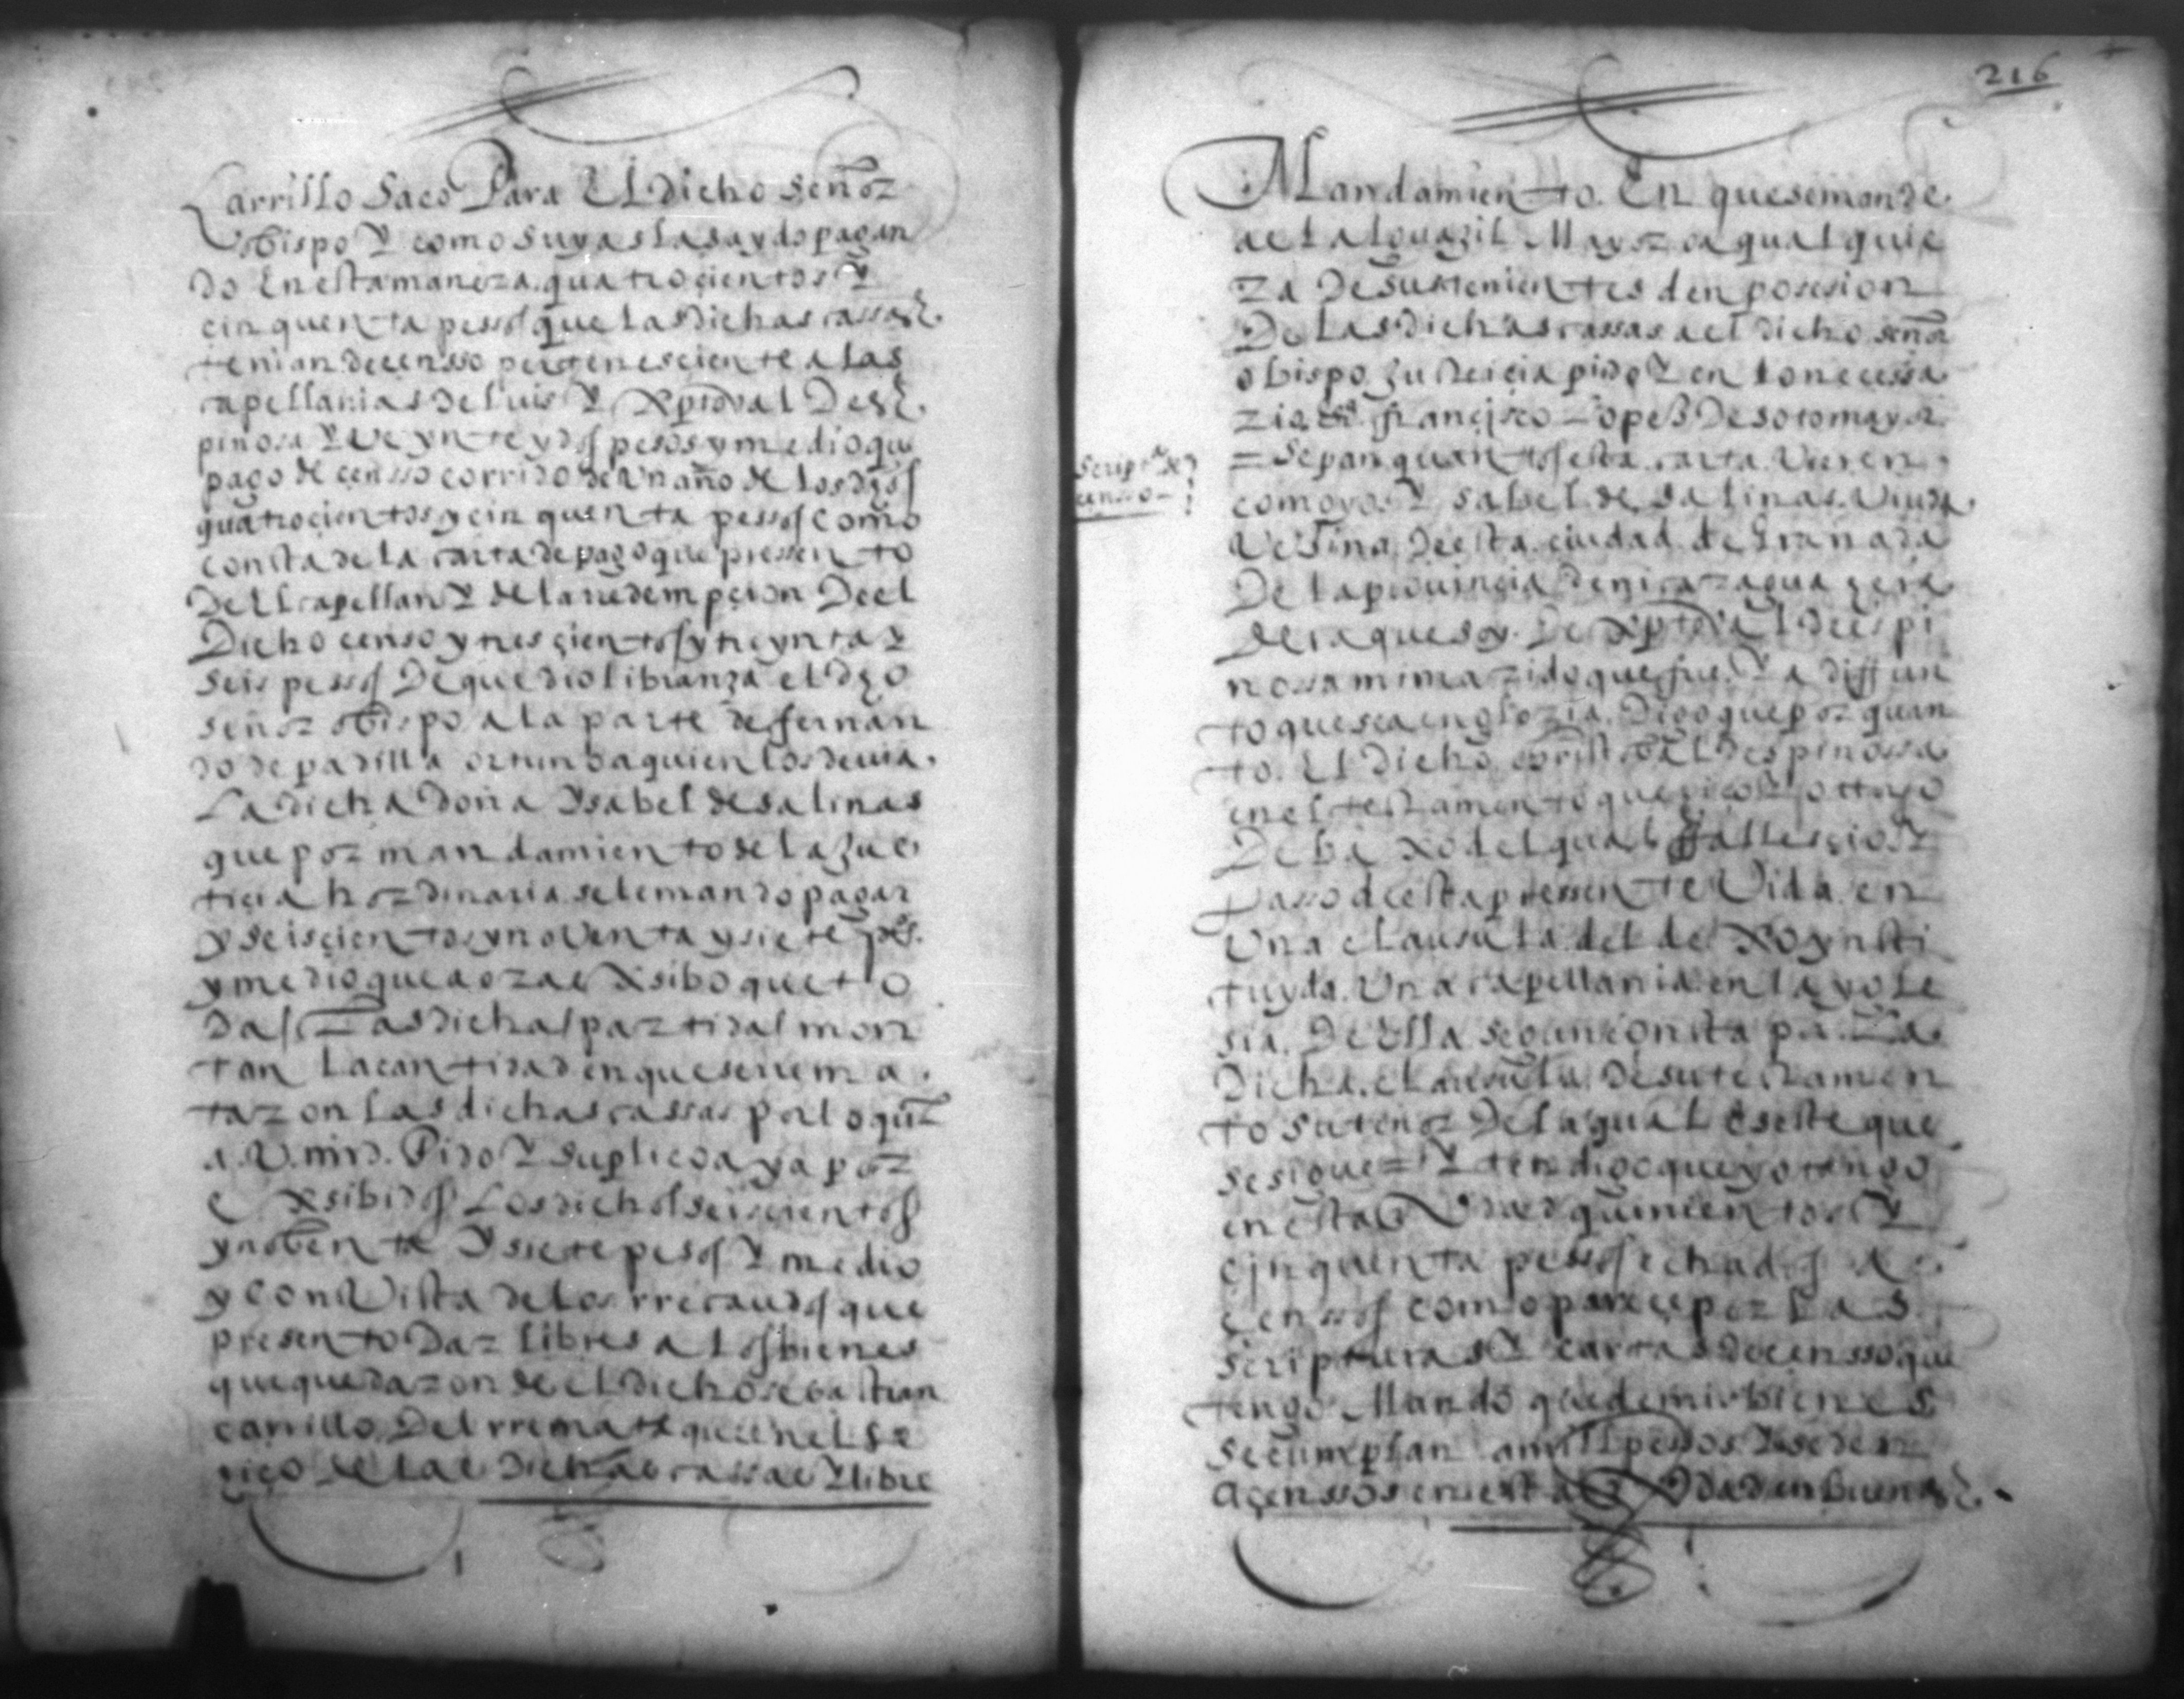 Carrillo saco Para El dicho señor
obispo Y como suyas las a ydo pagan
do En esta manera. quatroçientos Y
cinquenta pessos que las dichas cassas
tenian de censso pertenesciente a las
capellanias de luis Y Xpoval Des
pinosa Y Veynte y dos pesos y medio que
pago de çensso corrido de Un año de los dhos
quatroçientos y cinquenta pessos como
consta de la carta de pago que pressento
Del capellan Y de la redempçion Deel
Dicho censo y tresçientos y treynta Y
seis pessos De que dio libranza el dho
señor obispo a la parte de fernan
do de padilla a quien los devia.
La dicha doña Ysabel de salinas
que por mandamiento de la Jus
tiçia hordinaria se le mando pagar
y seisçientos y noventa y siete ps.
y medio que aora exsibo que to
das Las dichas partidas mon
tan La cantidad en que se rrema
taron Las dichas cassas por lo qual
a. V. md. Pido Y suplico aya por
exsibidos Los dichos seiscientos
y noventa Y siete pesos Y medio
y con Vista de los rrecaudos que
presento Dar libres a los bienes
que quedaron de el dicho sebastian
carrillo Del rremate que en el se
hiço de las Dichas cassas Y libre
216
Mandamiento. En que se mande
ael alguazil Mayor o a qualquie
ra De sus tenientes den posesion
De Las dichas cassas a el dicho señor
obispo Justiçia pido Y en lo necessa
rio françisco Lopez De sotomayor
= Sepan quantos esta carta Vieren
como yo Ysabel de salinas Viuda
Vesina De esta ciudad de Granada
De la provinçia de nicaragua
que soy. De Xpoval De espi
nossa mi marido que fue Ya diffun
to que sea en gloria. Digo que por quan
to. El Dicho cristobal Despinossa
en el testamento que hiço Y otorgo
Debaxo del qual ffallesçio Y
passo de esta pressente Vida en
Una clausula del dexo ynsti
tuyda. Una capellania en la ygle
sia. De Ella segun consta pa. La
Dicha. clausula De su testamen
to su tenor De la qual es este que
se sigue = Yten digo que yo tengo
en esta quinientos Y
cinquenta pessos echados a
çenssos como pareçe por Las
scripturas Y cartas de censso que
tengo Mando que de mis bienes
se cumplan a mill pessos Y se den
a çenssos en esta buenas
Scriptª de
censso